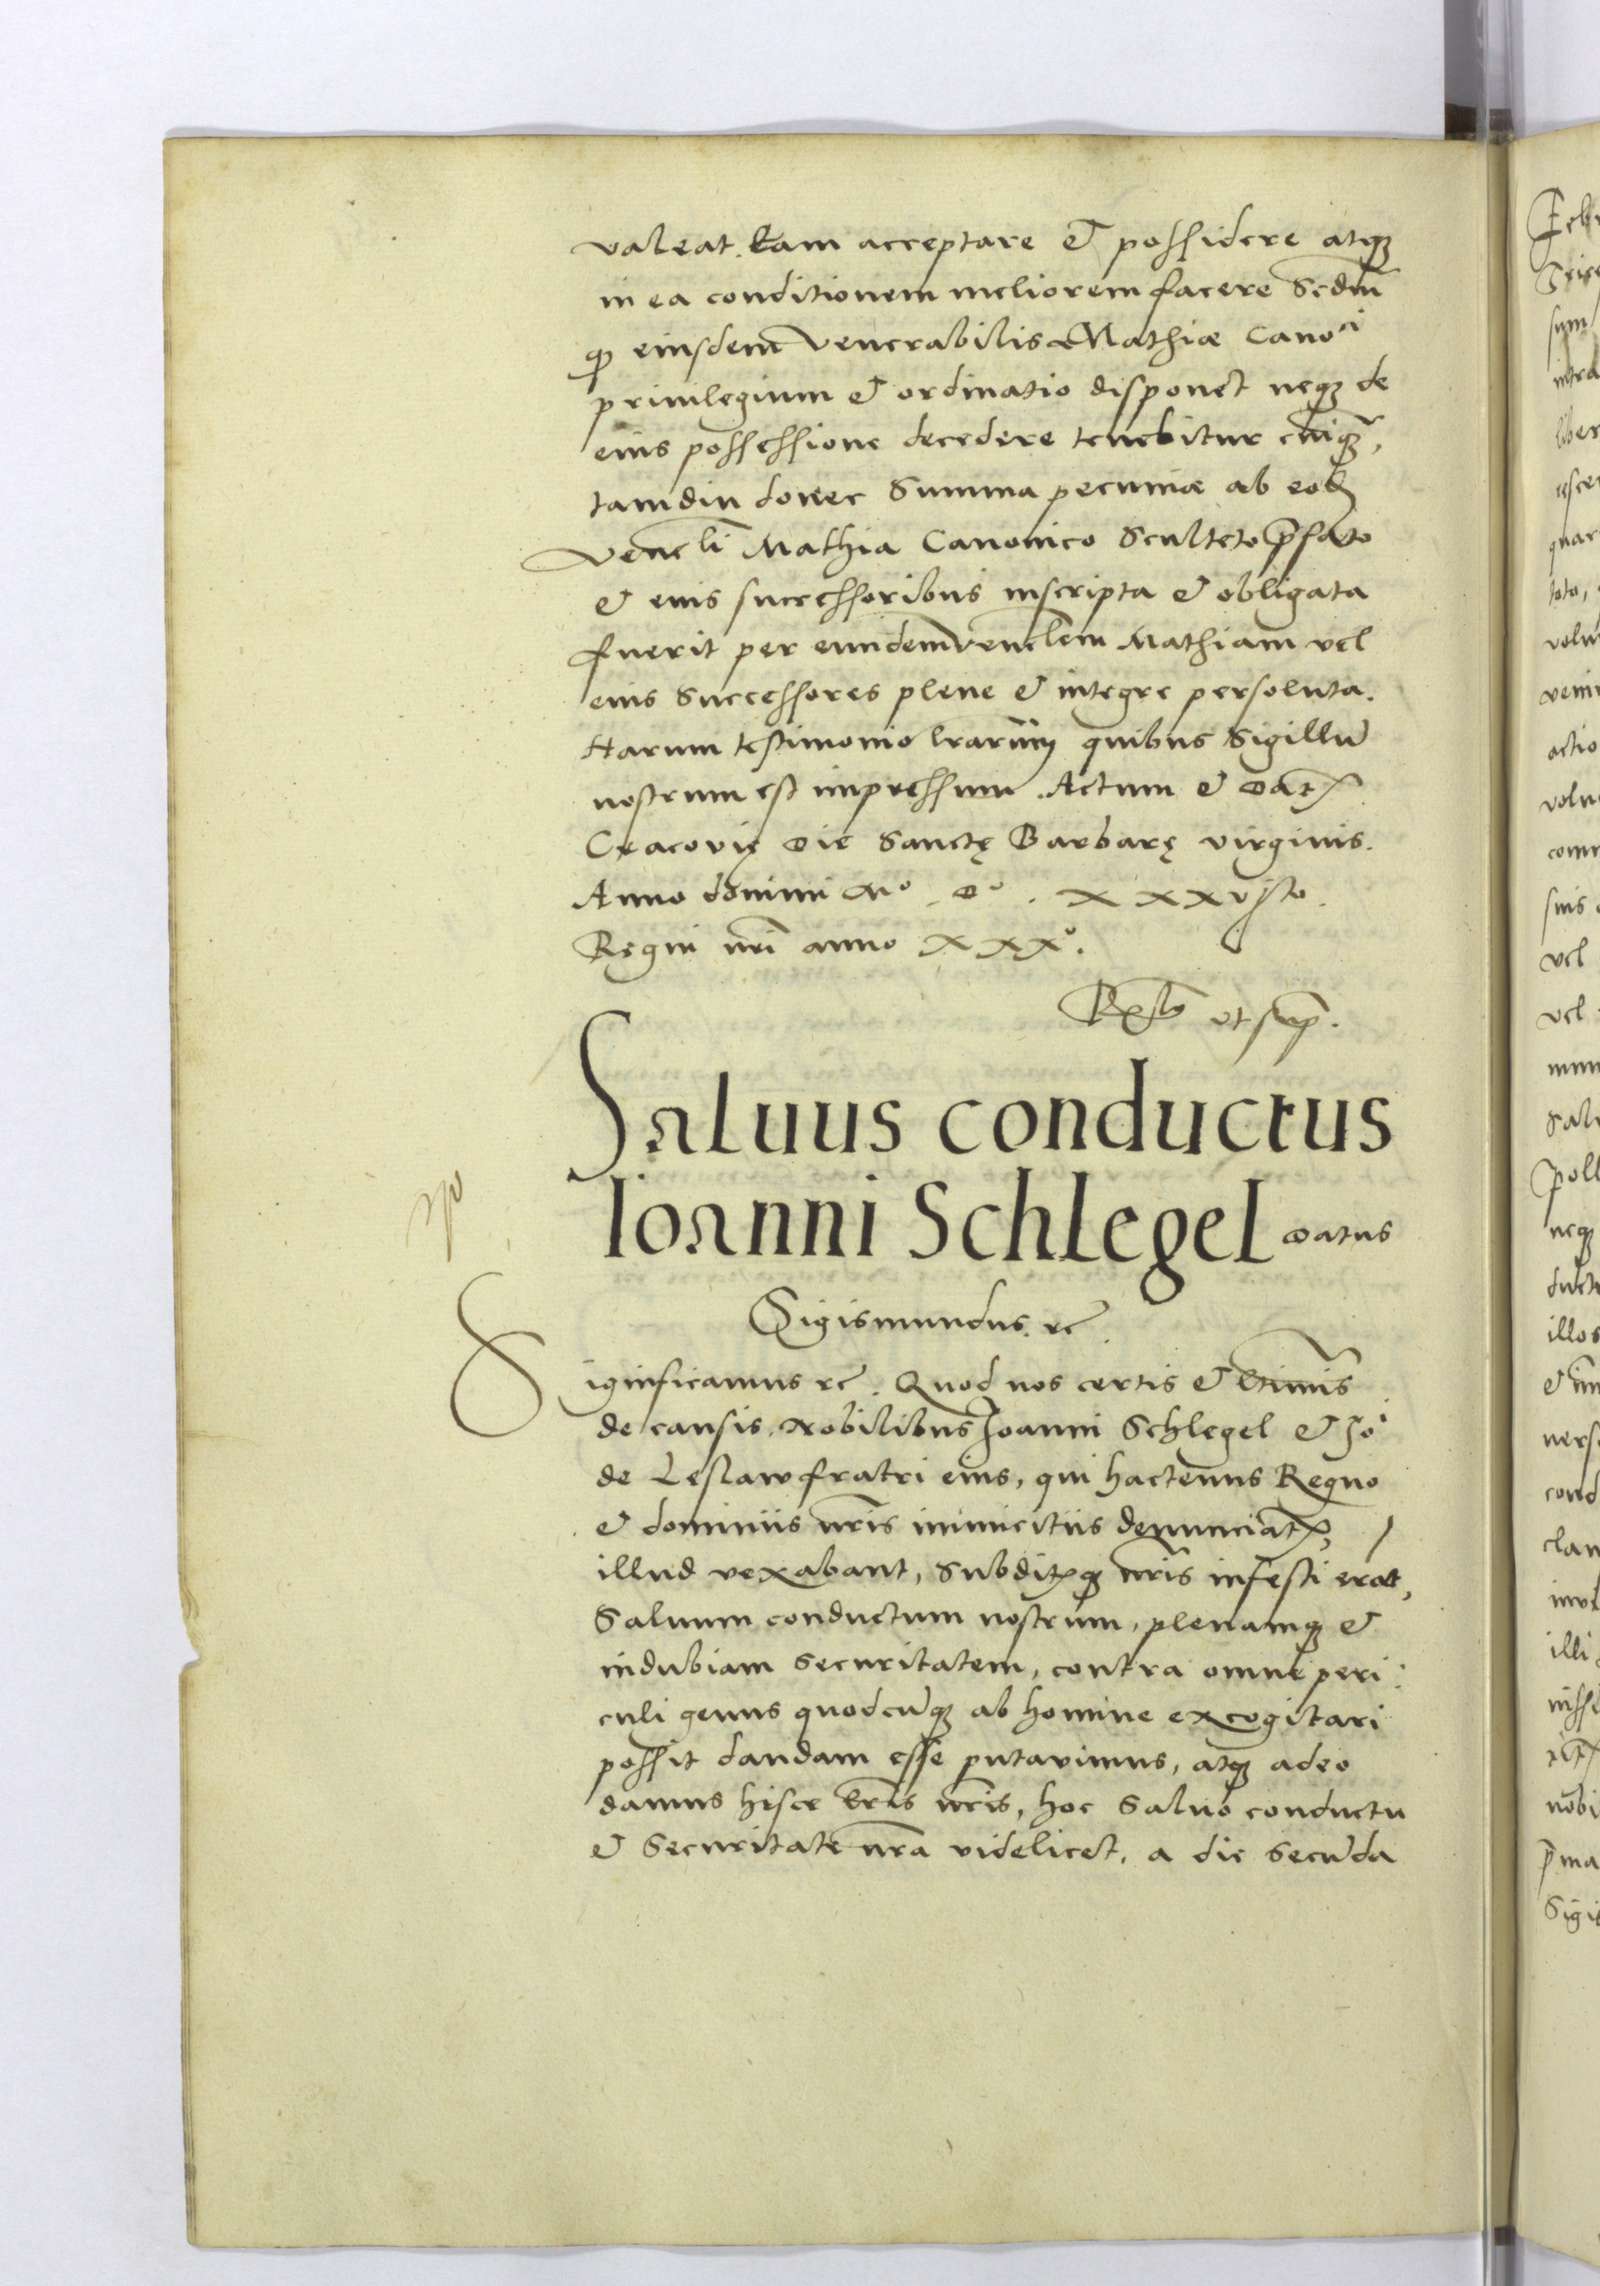 valeat. Eam acceptare et possidere atq
in ea conditionem meliorem facere Scdm
q eiusdem Venerabilis Mathiæ Canoci
priuilegium et ordinatio disponet neq de
eius possessione decedere tenebitur cuiq,
tamdiu donec Summa pecuniæ ab eod
Venli Mathia Canonico Sculteto pfato
et eius successoribus inscripta et obligata
fuerit per eundem venlem Mathiam vel
eius Successores plene et integre persoluta.
Harum testimonio lrarum quibus Sigillu
nostrum est impressum. Actum et Dat
Cracovię Die Sanctę Barbarę virginis.
Anno domini Mo. Do. xxxvjto.
Regni nri anno xxxo.
ut sup.
Saluus conductus
Ioanni Schlegel Datus
Sigismundus. rc
Significamus rc. Quod nos certis et ltimis
de causis. Nobilibus Joanni Schlegel et Joi
de Leslaw fratri eius, qui hactenus Regno
et dominiis nris inimicitiis denunciat,
illud vexabant, Subditq nris infesti erat,
Saluum conductum nostrum, plenamq et
indubiam Securitatem, contra omne peri:
culi genus quodcuq ab homine excogitari
possit dandam esse putavimus, atq adeo
damus hisce lris nris, hoc Saluo conductu
et Securitate nra videlicet, a die Secuda